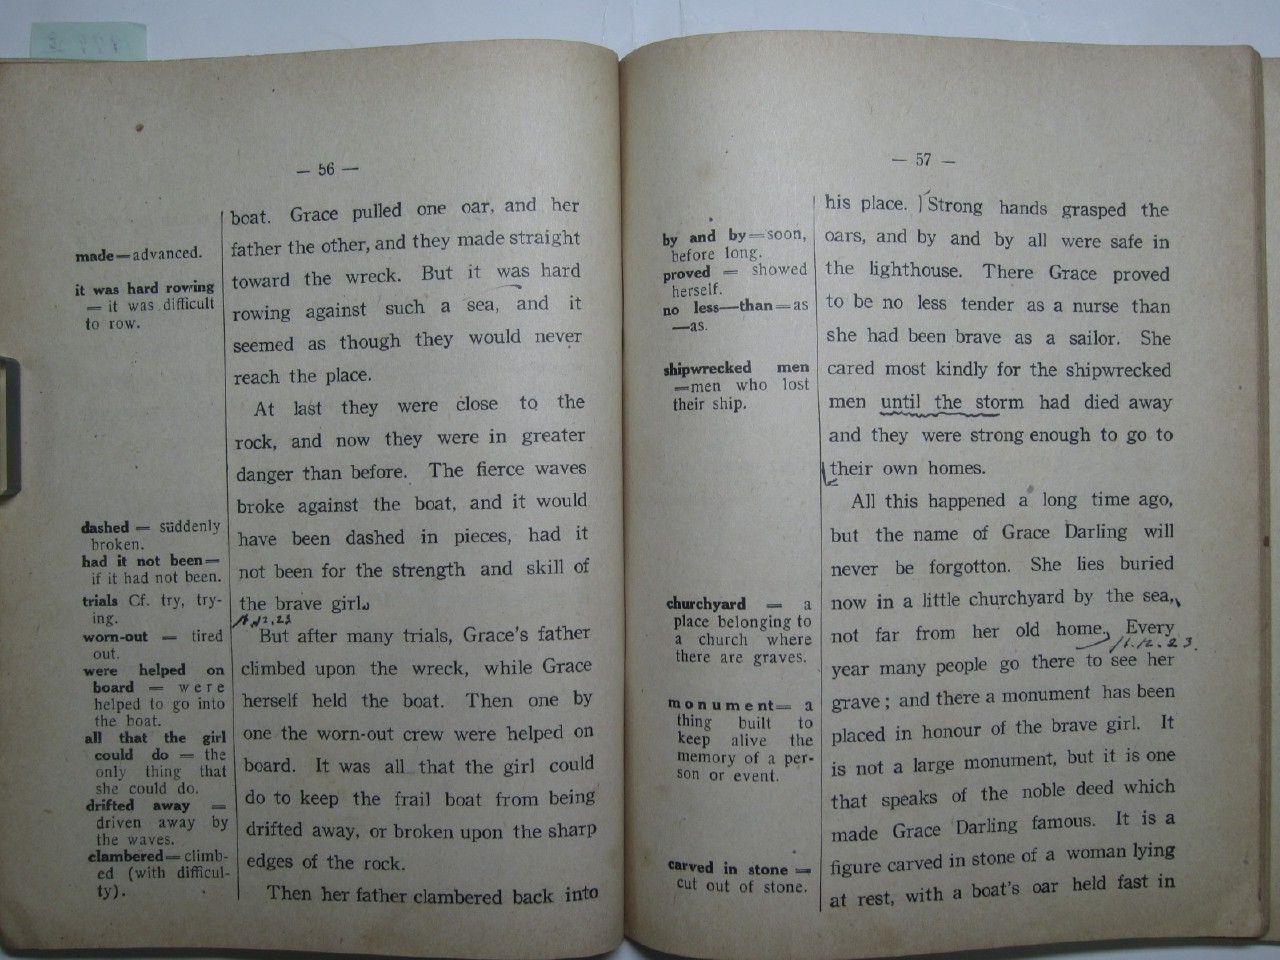 — 56 —
made=advanced.
it was hard rowing
= it was difficult
to row.
dashed = suddenly
broken.
had it not been=
if it had not been.
trials Cf. try, try-
ing.
worn-out = tired
out.
were helped on
board = were
helped to go into
the boat.
all that the girl
could do = the
only thing that
she could do.
drifted away =
driven away by
the waves.
clambered=climb-
ed (with difficul-
ty).
boat. Grace pulled one oar, and her
father the other, and they made straight
toward the wreck. But it was hard
rowing against such a sea, and it
seemed as though they would never
reach the place.
At last they were close to the
rock, and now they were in greater
danger than before. The fierce waves
broke against the boat, and it would
have been dashed in pieces, had it
not been for the strength and skill of
the brave girl.
But after many trials, Grace's father
climbed upon the wreck, while Grace
herself held the boat. Then one by
one the worn-out crew were helped on
board. It was all that the girl could
do to keep the frail boat from being
drifted away, or broken upon the sharp
edges of the rock.
Then her father clambered back into
— 57 —
by and by=soon,
before long.
proved = showed
herself.
no less—than=as
—as.
shipwrecked men
=men who lost
their ship.
churchyard = a
place belonging to
a church where
there are graves.
monument= a
thing built to
keep alive the
memory of a per-
son or event.
carved in stone =
cut out of stone.
his place. Strong hands grasped the
oars, and by and by all were safe in
the lighthouse. There Grace proved
to be no less tender as a nurse than
she had been brave as a sailor. She
cared most kindly for the shipwrecked
men until the storm had died away
and they were strong enough to go to
their own homes.
All this happened a long time ago,
but the name of Grace Darling will
never be forgotton. She lies buried
now in a little churchyard by the sea,
not far from her old home. Every
11.12.23.
year many people go there to see her
grave; and there a monument has been
placed in honour of the brave girl. It
is not a large monument, but it is one
that speaks of the noble deed which
made Grace Darling famous. It is a
figure carved in stone of a woman lying
at rest, with a boat's oar held fast in